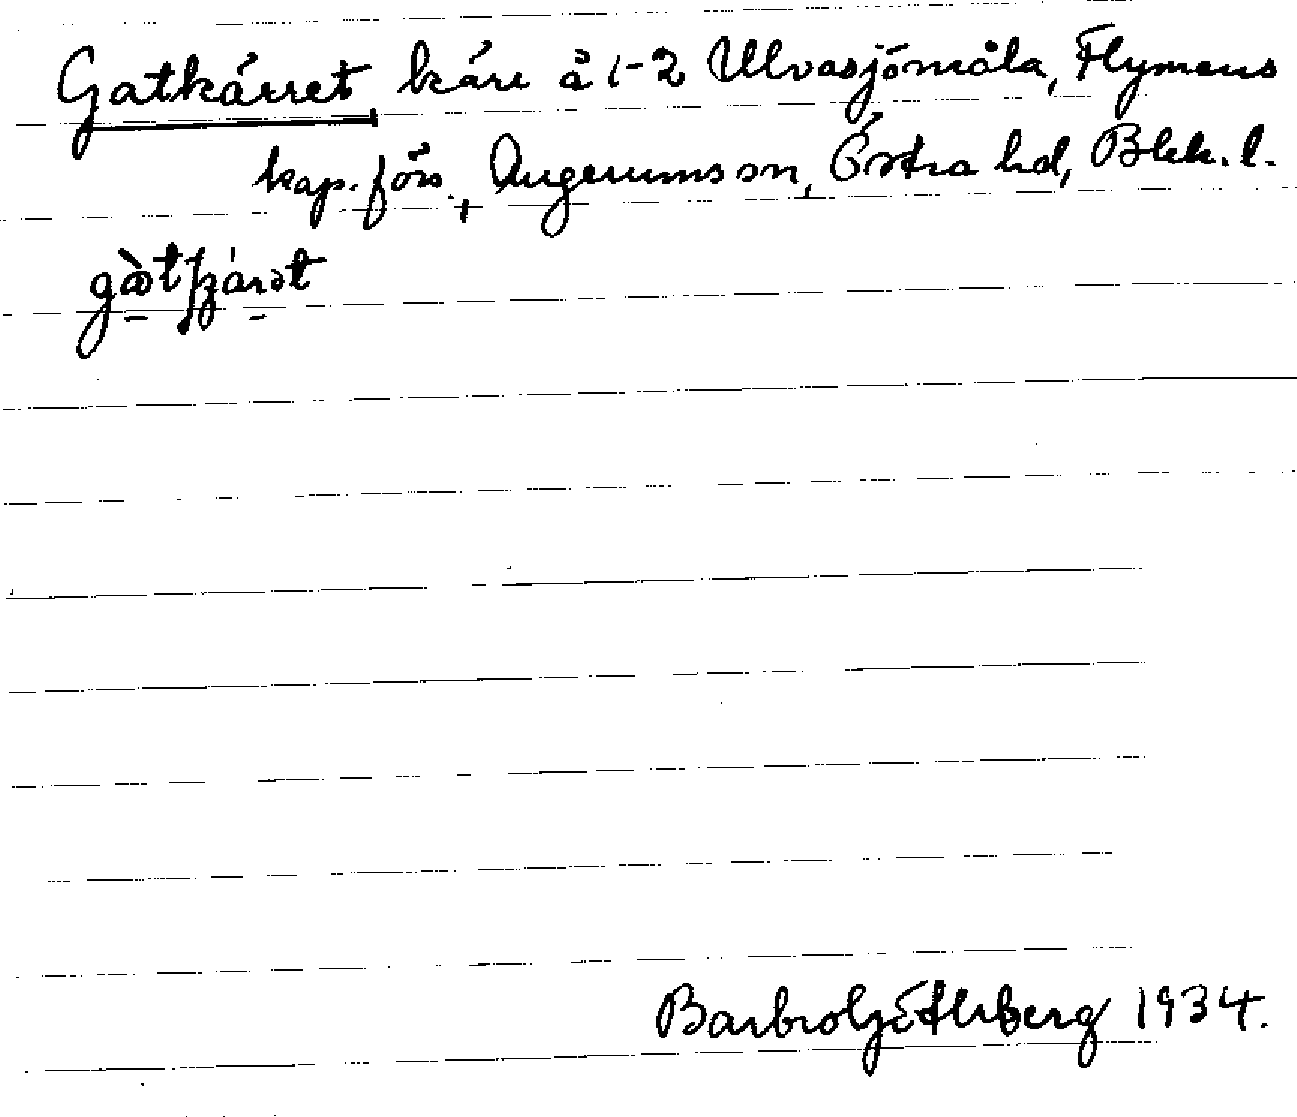 Gatkärret, kärr å 1-2 Ulvasjömåla, Flymens
kap.förs., Augerums sn, Östra hd, Blek. l.
Barbro Göthberg 1934.